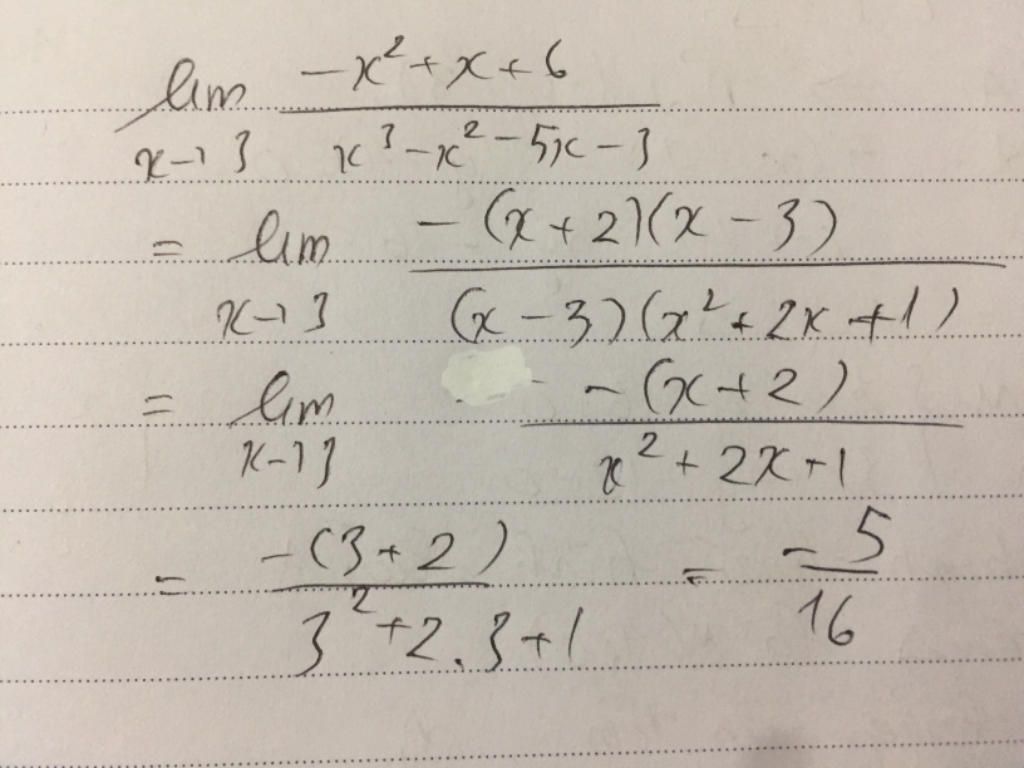 lim -x²+x+6
x→3 x³-x²-5x-3
= lim -(x+2)(x-3)
x→3 (x-3)(x²+2x+1)
= lim -(x+2)
x→3 x²+2x+1
= -(3+2) = -5
3²+2.3+1 16